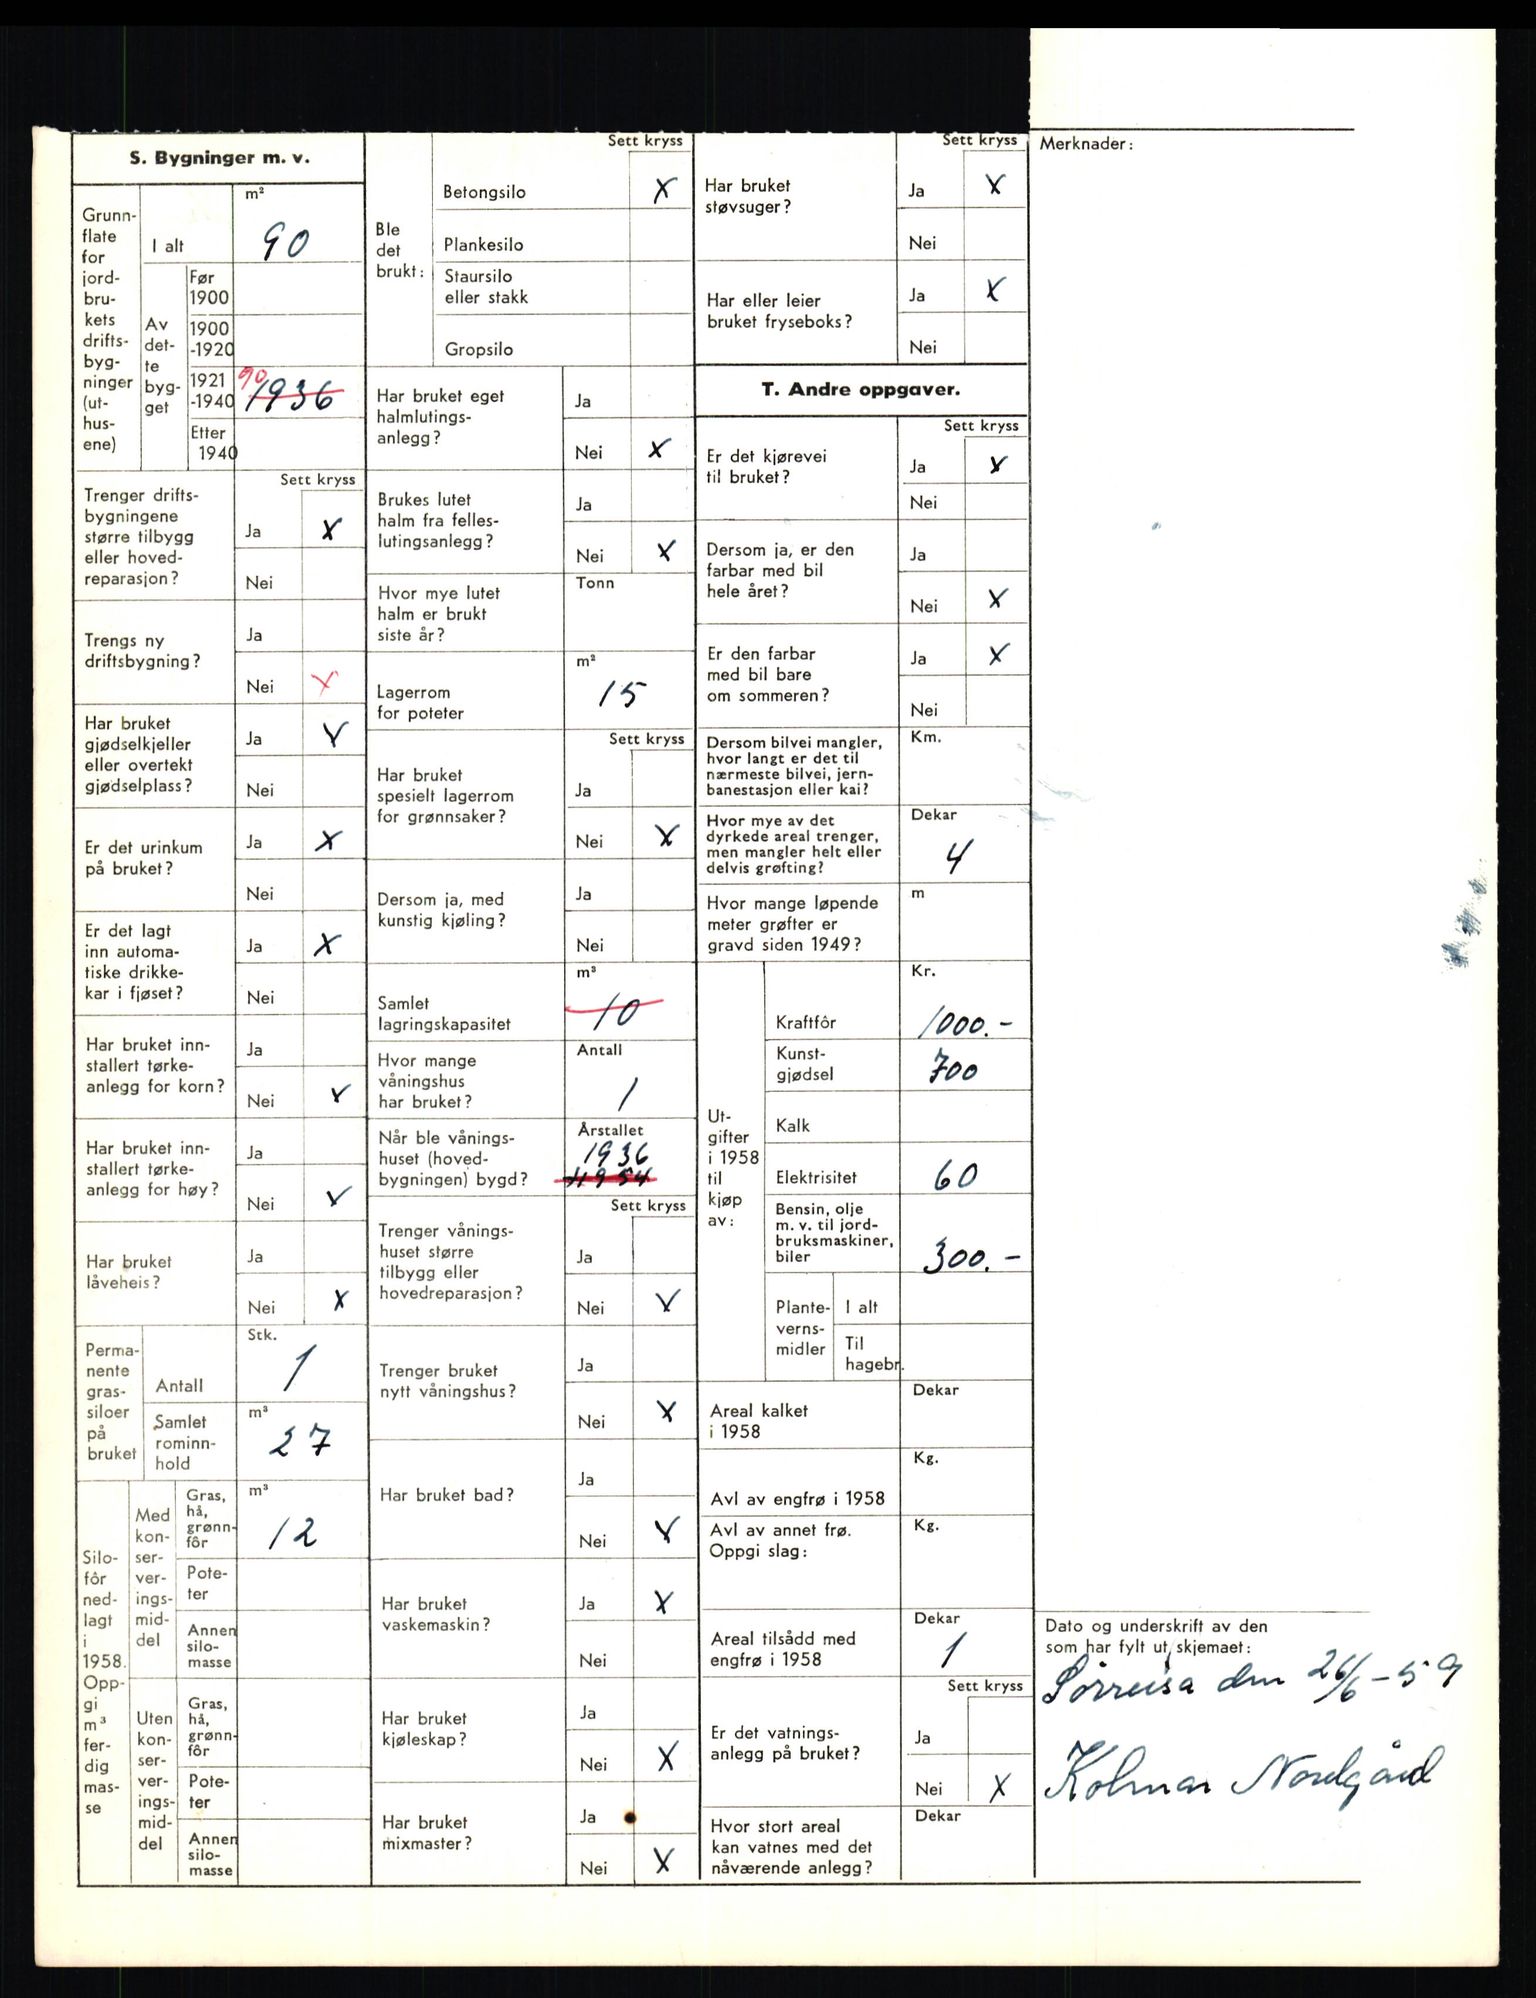 S. Bygninger m. v.
Grunn-
flate
for
jord-
bru-
kets
drifts-
byg-
ninger
(ut-
hus-
ene)
I alt
m²
90
Av
det-
te
byg-
get
Før
1900
1900
-1920
1921
-1940
90
1936
Etter
1940
Sett kryss
Trenger drifts-
bygningene
større tilbygg
eller hoved-
reparasjon?
Ja X
Nei
Trengs ny
driftsbygning?
Ja
Nei X
Har bruket
gjødselkjeller
eller overtekt
gjødselplass?
Ja X
Nei
Er det urinkum
på bruket?
Ja X
Nei
Er det lagt
inn automa-
tiske drikke-
kar i fjøset?
Ja X
Nei
Har bruket inn-
stallert tørke-
anlegg for korn?
Ja
Nei X
Har bruket inn-
stallert tørke-
anlegg for høy?
Ja
Nei X
Har bruket
låveheis?
Ja
Nei X
Perma-
nente
gras-
siloer
på
bruket
Antall
Stk.
1
Samlet
rominn-
hold
m³
27
Silo-
fôr
ned-
lagt
i
1958.
Opp-
gi
m³
fer-
dig
mas-
se
Med
kon-
ser-
ver-
ings-
mid-
del
Gras,
hå,
grønn-
fôr
m³
12
Pote-
ter
Annen
silo-
masse
Uten
kon-
ser-
ver-
ings-
mid-
del
Gras,
hå,
grønn-
fôr
Pote-
ter
Annen
silo-
masse
Sett kryss
Ble
det
brukt:
Betongsilo X
Plankesilo
Staursilo
eller stakk
Gropsilo
Har bruket eget
halmlutings-
anlegg?
Ja
Nei X
Brukes lutet
halm fra felles-
lutingsanlegg?
Ja
Nei X
Hvor mye lutet
halm er brukt
siste år?
Tonn
Lagerrom
for poteter
m²
15
Sett kryss
Har bruket
spesielt lagerrom
for grønnsaker?
Ja
Nei X
Dersom ja, med
kunstig kjøling?
Ja
Nei
Samlet
lagringskapasitet
m³
10
Hvor mange
våningshus
har bruket?
Antall
1
Når ble vånings-
huset (hoved-
bygningen) bygd?
Årstallet
1936
1954
Sett kryss
Trenger vånings-
huset større
tilbygg eller
hovedreparasjon?
Ja
Nei X
Trenger bruket
nytt våningshus?
Ja
Nei X
Har bruket bad?
Ja
Nei X
Har bruket
vaskemaskin?
Ja X
Nei
Har bruket
kjøleskap?
Ja
Nei X
Har bruket
mixmaster?
Ja
Nei X
Sett kryss
Har bruket
støvsuger?
Ja X
Nei
Har eller leier
bruket fryseboks?
Ja X
Nei
T. Andre oppgaver.
Sett kryss
Er det kjørevei
til bruket?
Ja X
Nei
Dersom ja, er den
farbar med bil
hele året?
Ja
Nei X
Er den farbar
med bil bare
om sommeren?
Ja X
Nei
Dersom bilvei mangler,
hvor langt er det til
nærmeste bilvei, jern-
banestasjon eller kai?
Km.
Hvor mye av det
dyrkede areal trenger,
men mangler helt eller
delvis grøfting?
Dekar
4
Hvor mange løpende
meter grøfter er
gravd siden 1949?
m
Ut-
gifter
i 1958
til
kjøp
av:
Kr.
Kraftfôr 1000.-
Kunst-
gjødsel 700
Kalk
Elektrisitet 60
Bensin, olje
m. v. til jord-
bruksmaskiner,
biler 300.-
Plante-
verns-
midler
I alt
Til
hagebr.
Areal kalket
i 1958
Dekar
Avl av engfrø i 1958
Kg.
Avl av annet frø.
Oppgi slag:
Kg.
Areal tilsådd med
engfrø i 1958
Dekar
1
Sett kryss
Er det vatnings-
anlegg på bruket?
Ja
Nei X
Hvor stort areal
kan vatnes med det
nåværende anlegg?
Dekar
Merknader:
Dato og underskrift av den
som har fylt ut skjemaet:
Sørreisa den 26/6-59
Kolmar Nordgård